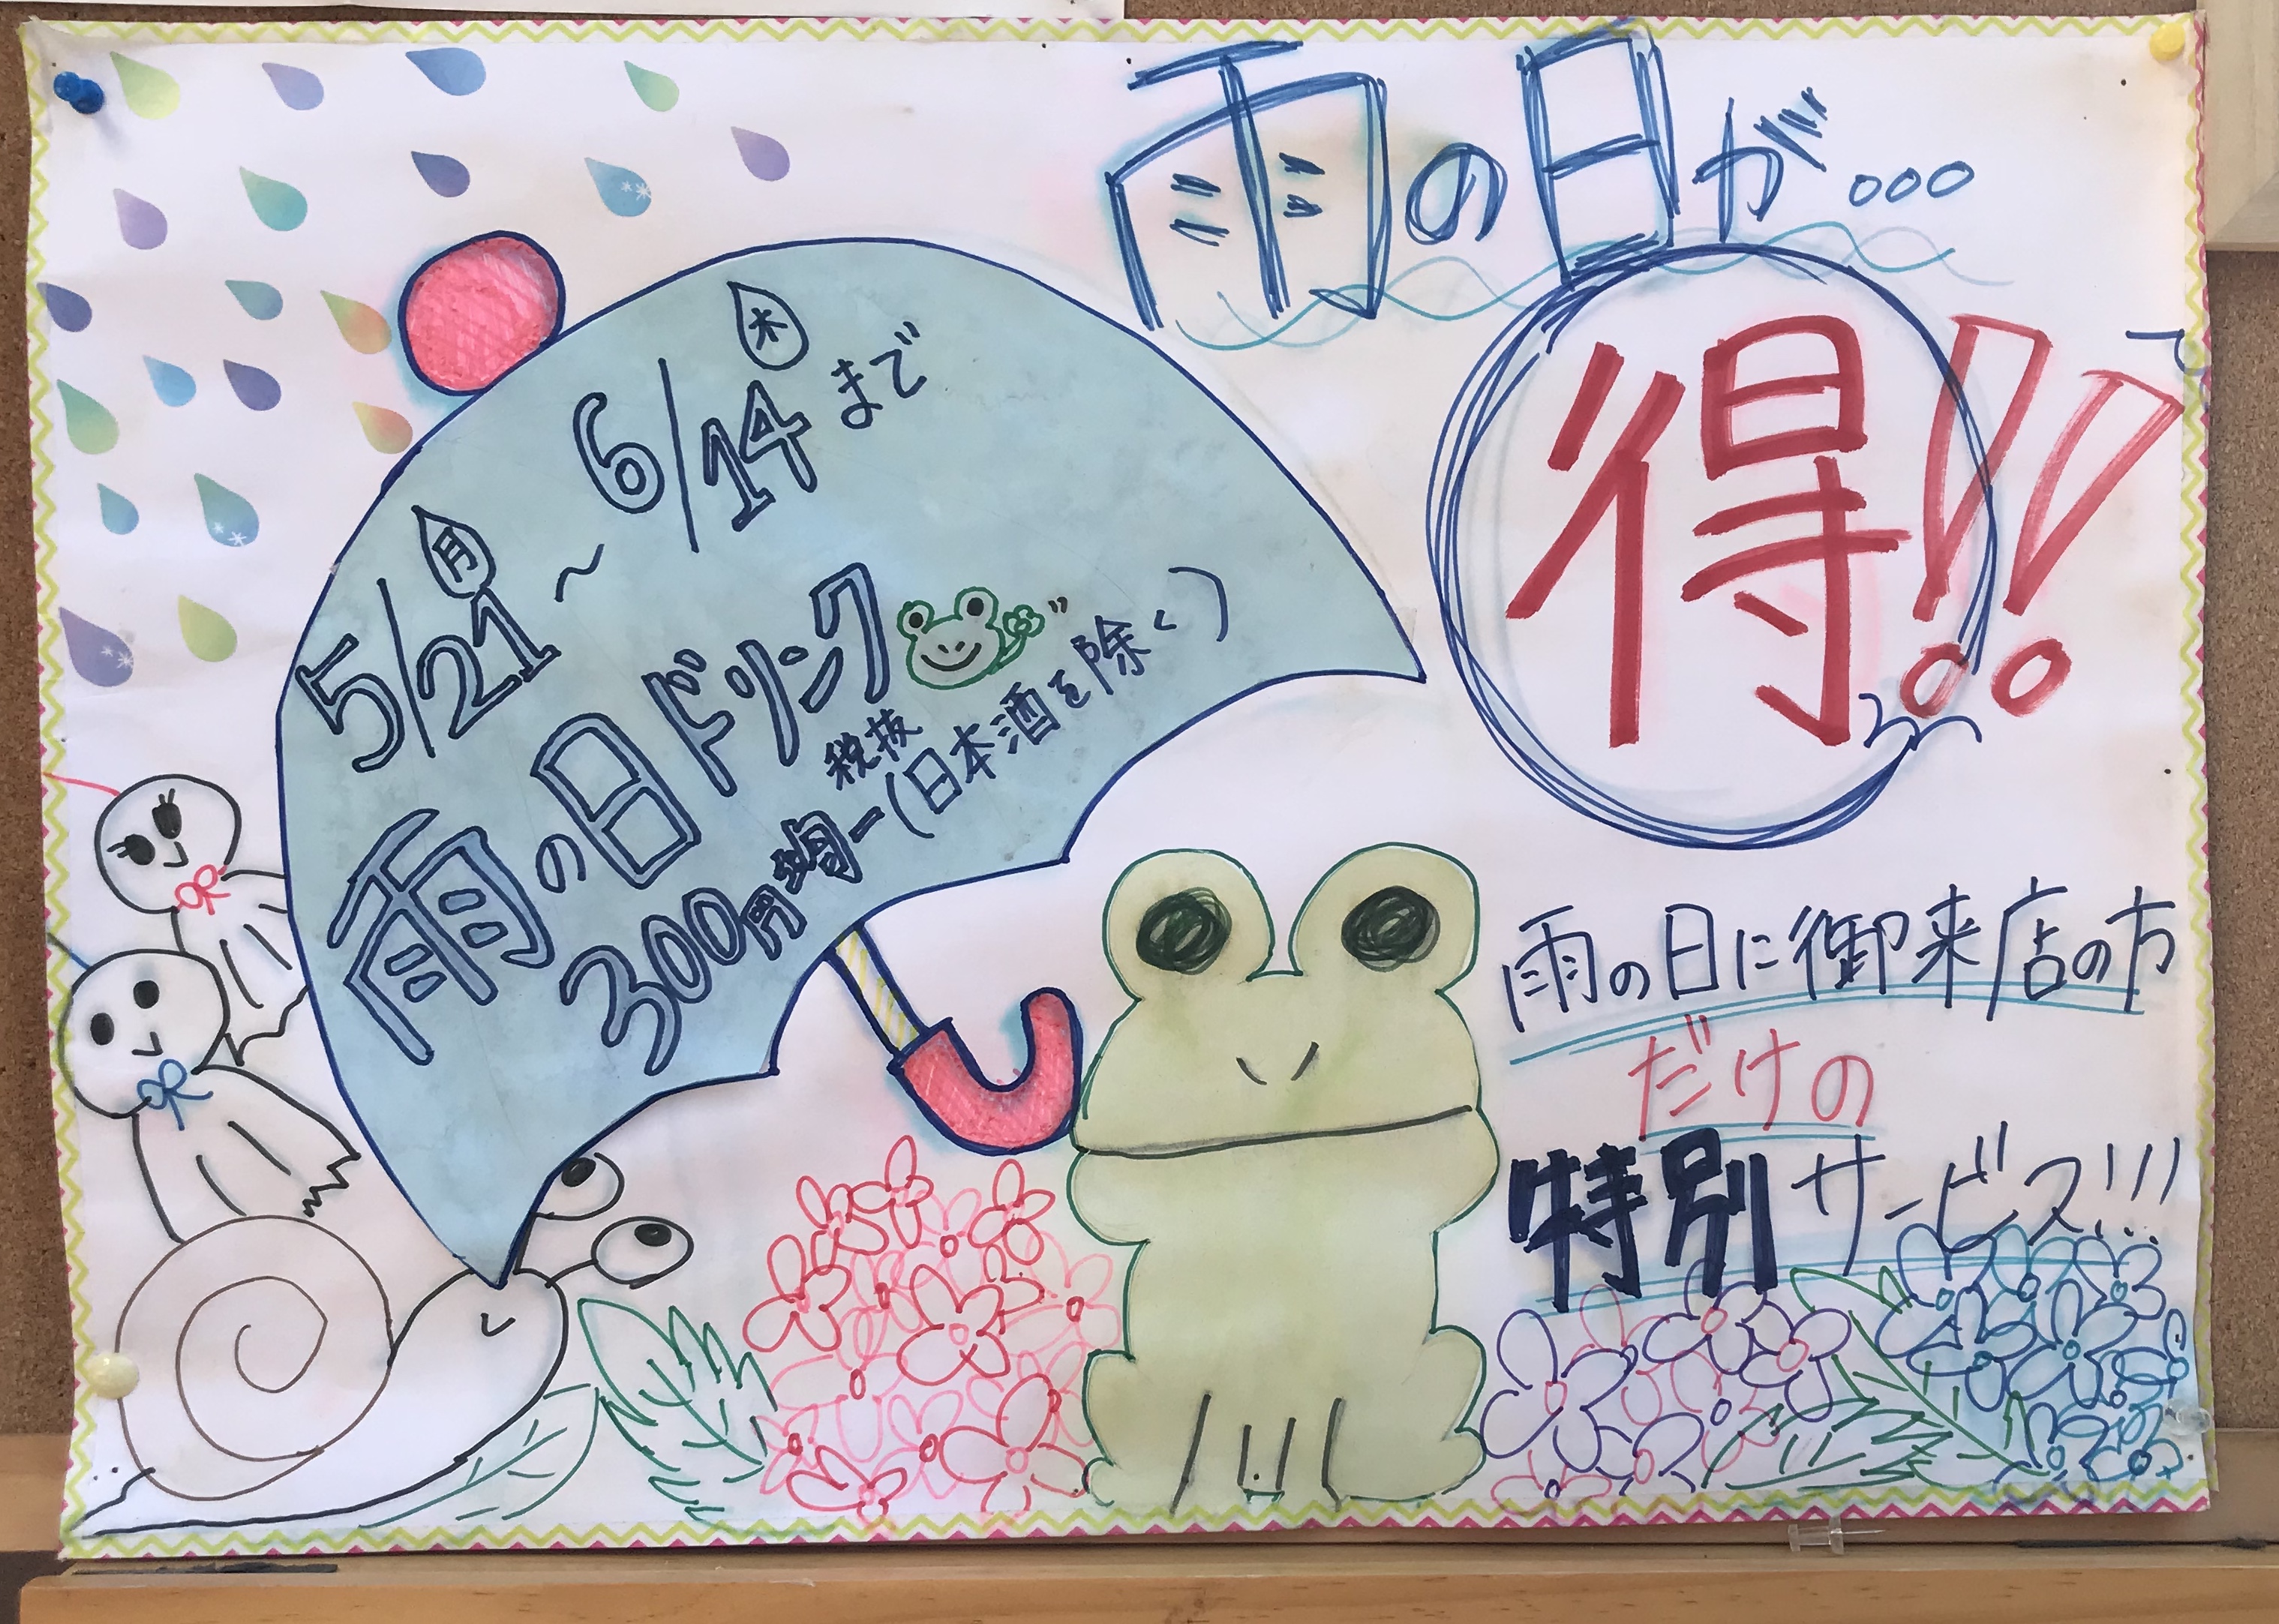 雨の日が...
得!!
5/21(月)~6/14(木)まで
雨の日ドリンク
税抜
300円均一(日本酒を除く)
雨の日に御来店の方
だけの
特別サービス!!!